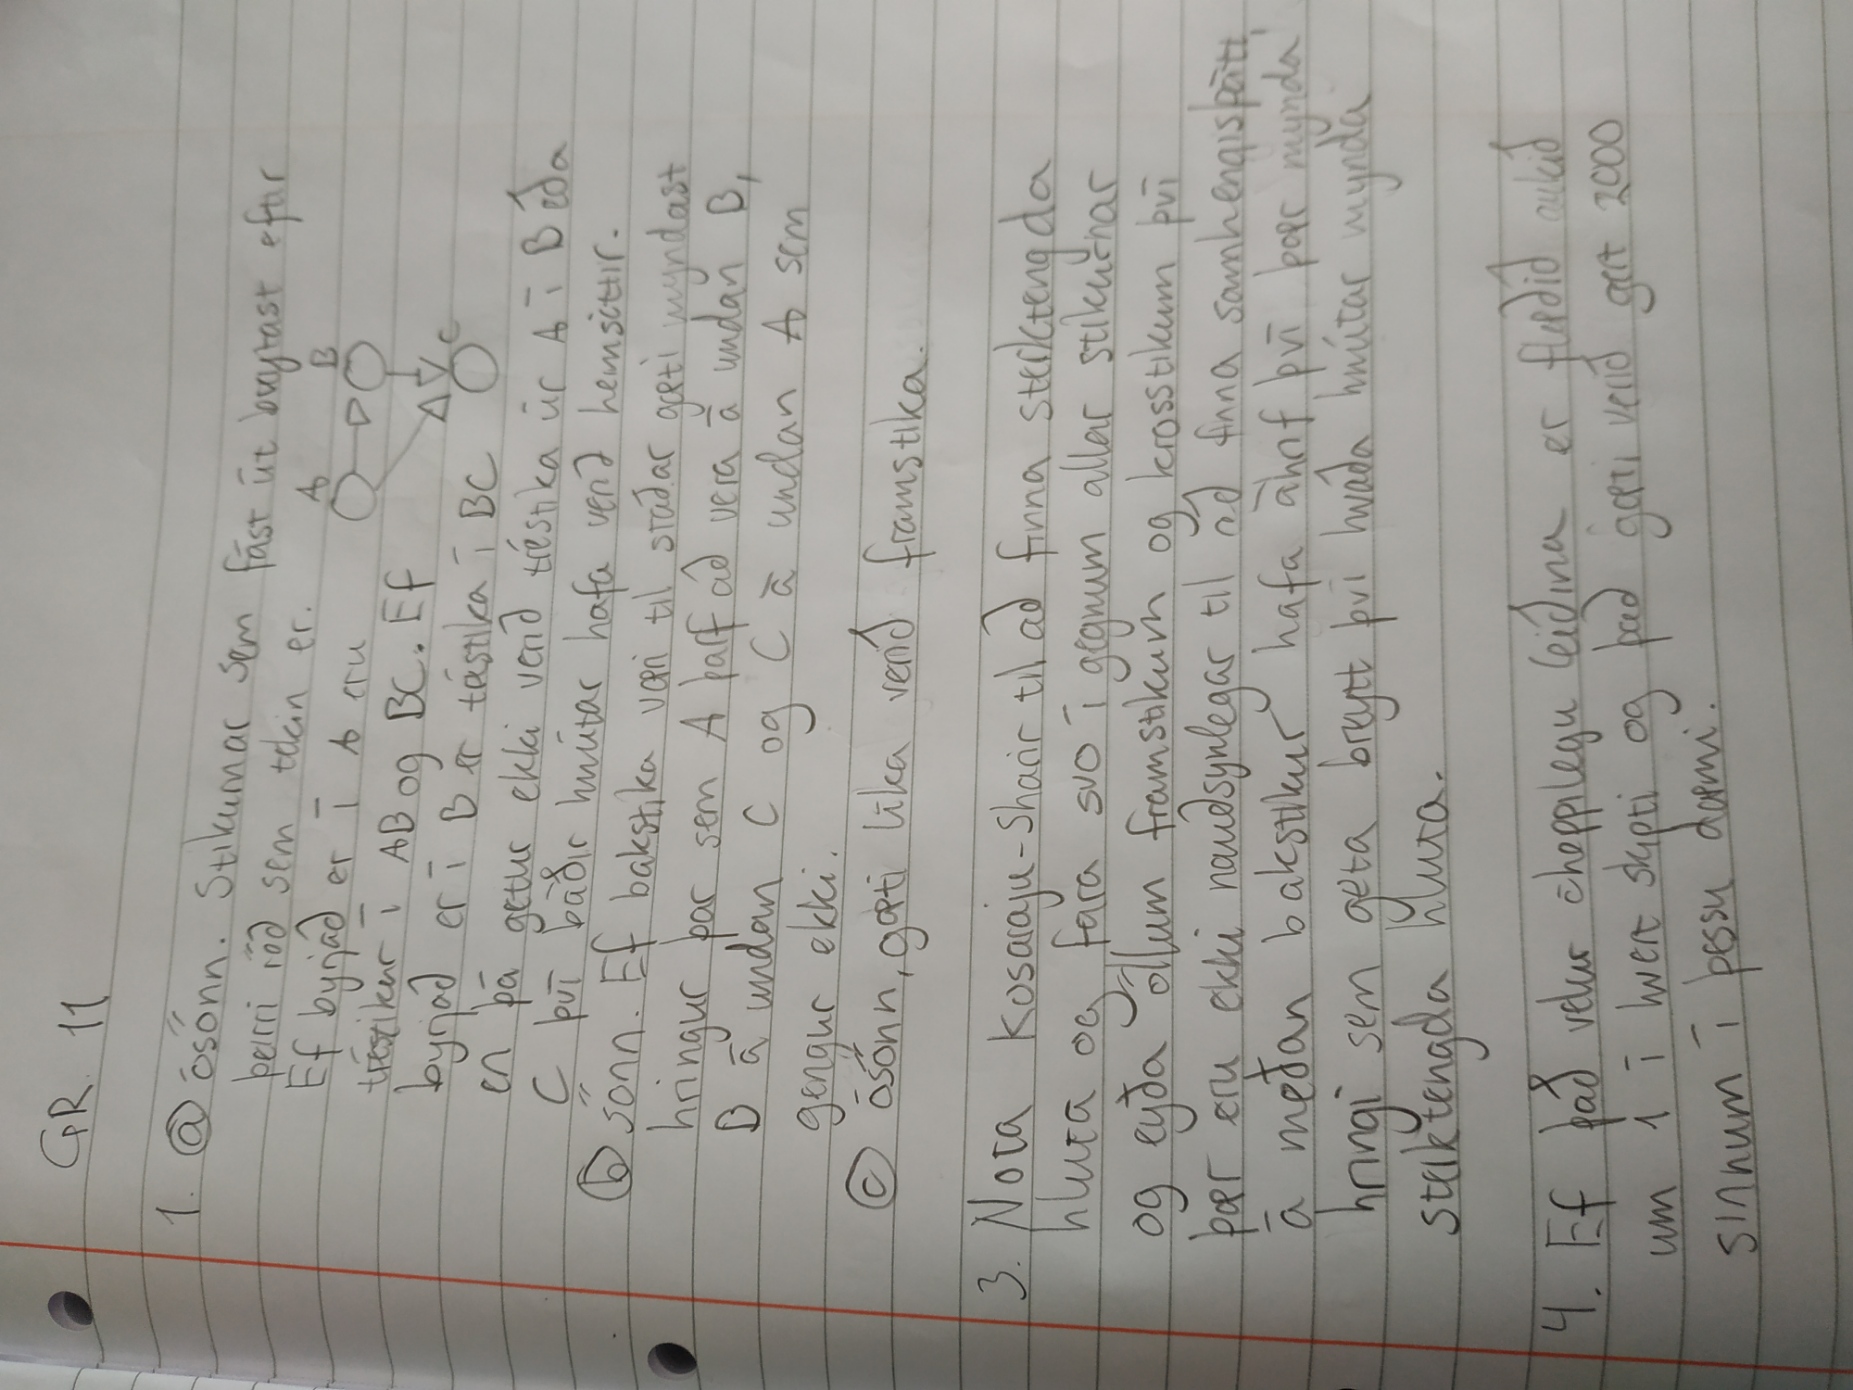 GR. 11
1. ⓐ ósönn. Stikurnar sem fást út breytast eftir
þeirri röð sem tekin er.
Ef byrjað er í A eru
tréstikur í AB og BC. Ef
byrjað er í B er tréstika í BC
en þá getur ekki verið tréstika úr A í B eða
C því báðir hnútar hafa verið heimsóttir.
A
B
C
ⓑ sönn. Ef bakstika væri til staðar gæti myndast
hringur þar sem A þarf að vera á undan B,
B á undan C og C á undan A sem
gengur ekki.
ⓒ ósönn, gæti líka verið framstika.
3. Nota Kosaraju-Sharir til að finna sterktengda
hluta og fara svo í gegnum allar stikurnar
og eyða öllum framstikum og krosstikum því
þær eru ekki nauðsynlegar til að finna samhengisþátt,
á meðan bakstikur hafa áhrif því þær mynda
hringi sem geta breytt því hvaða hnútar mynda
sterktengda hluta.
4. Ef það velur óheppilegu leiðina er flæðið aukið
um 1 í hvert skipti og það gæti verið gert 2000
sinnum í þessu dæmi.